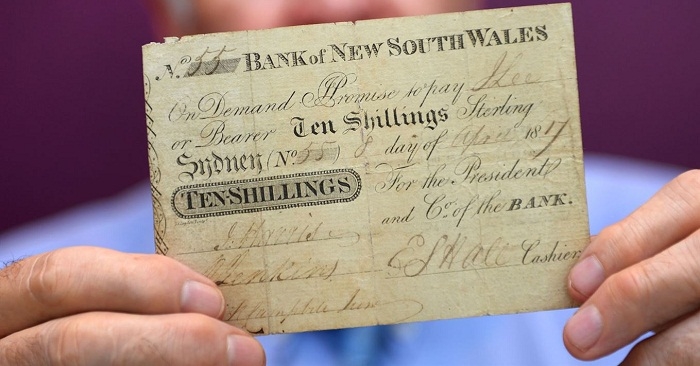 No. 55 BANK of NEW SOUTH WALES
On Demand I Promise to pay I Lee
or Bearer Ten Shillings Sterling
Sydney (No. 55) 8 day of April 1817
TEN-SHILLINGS
For the President
and Co. of the BANK.
J Harris
Jenkins
E S Hall Cashier